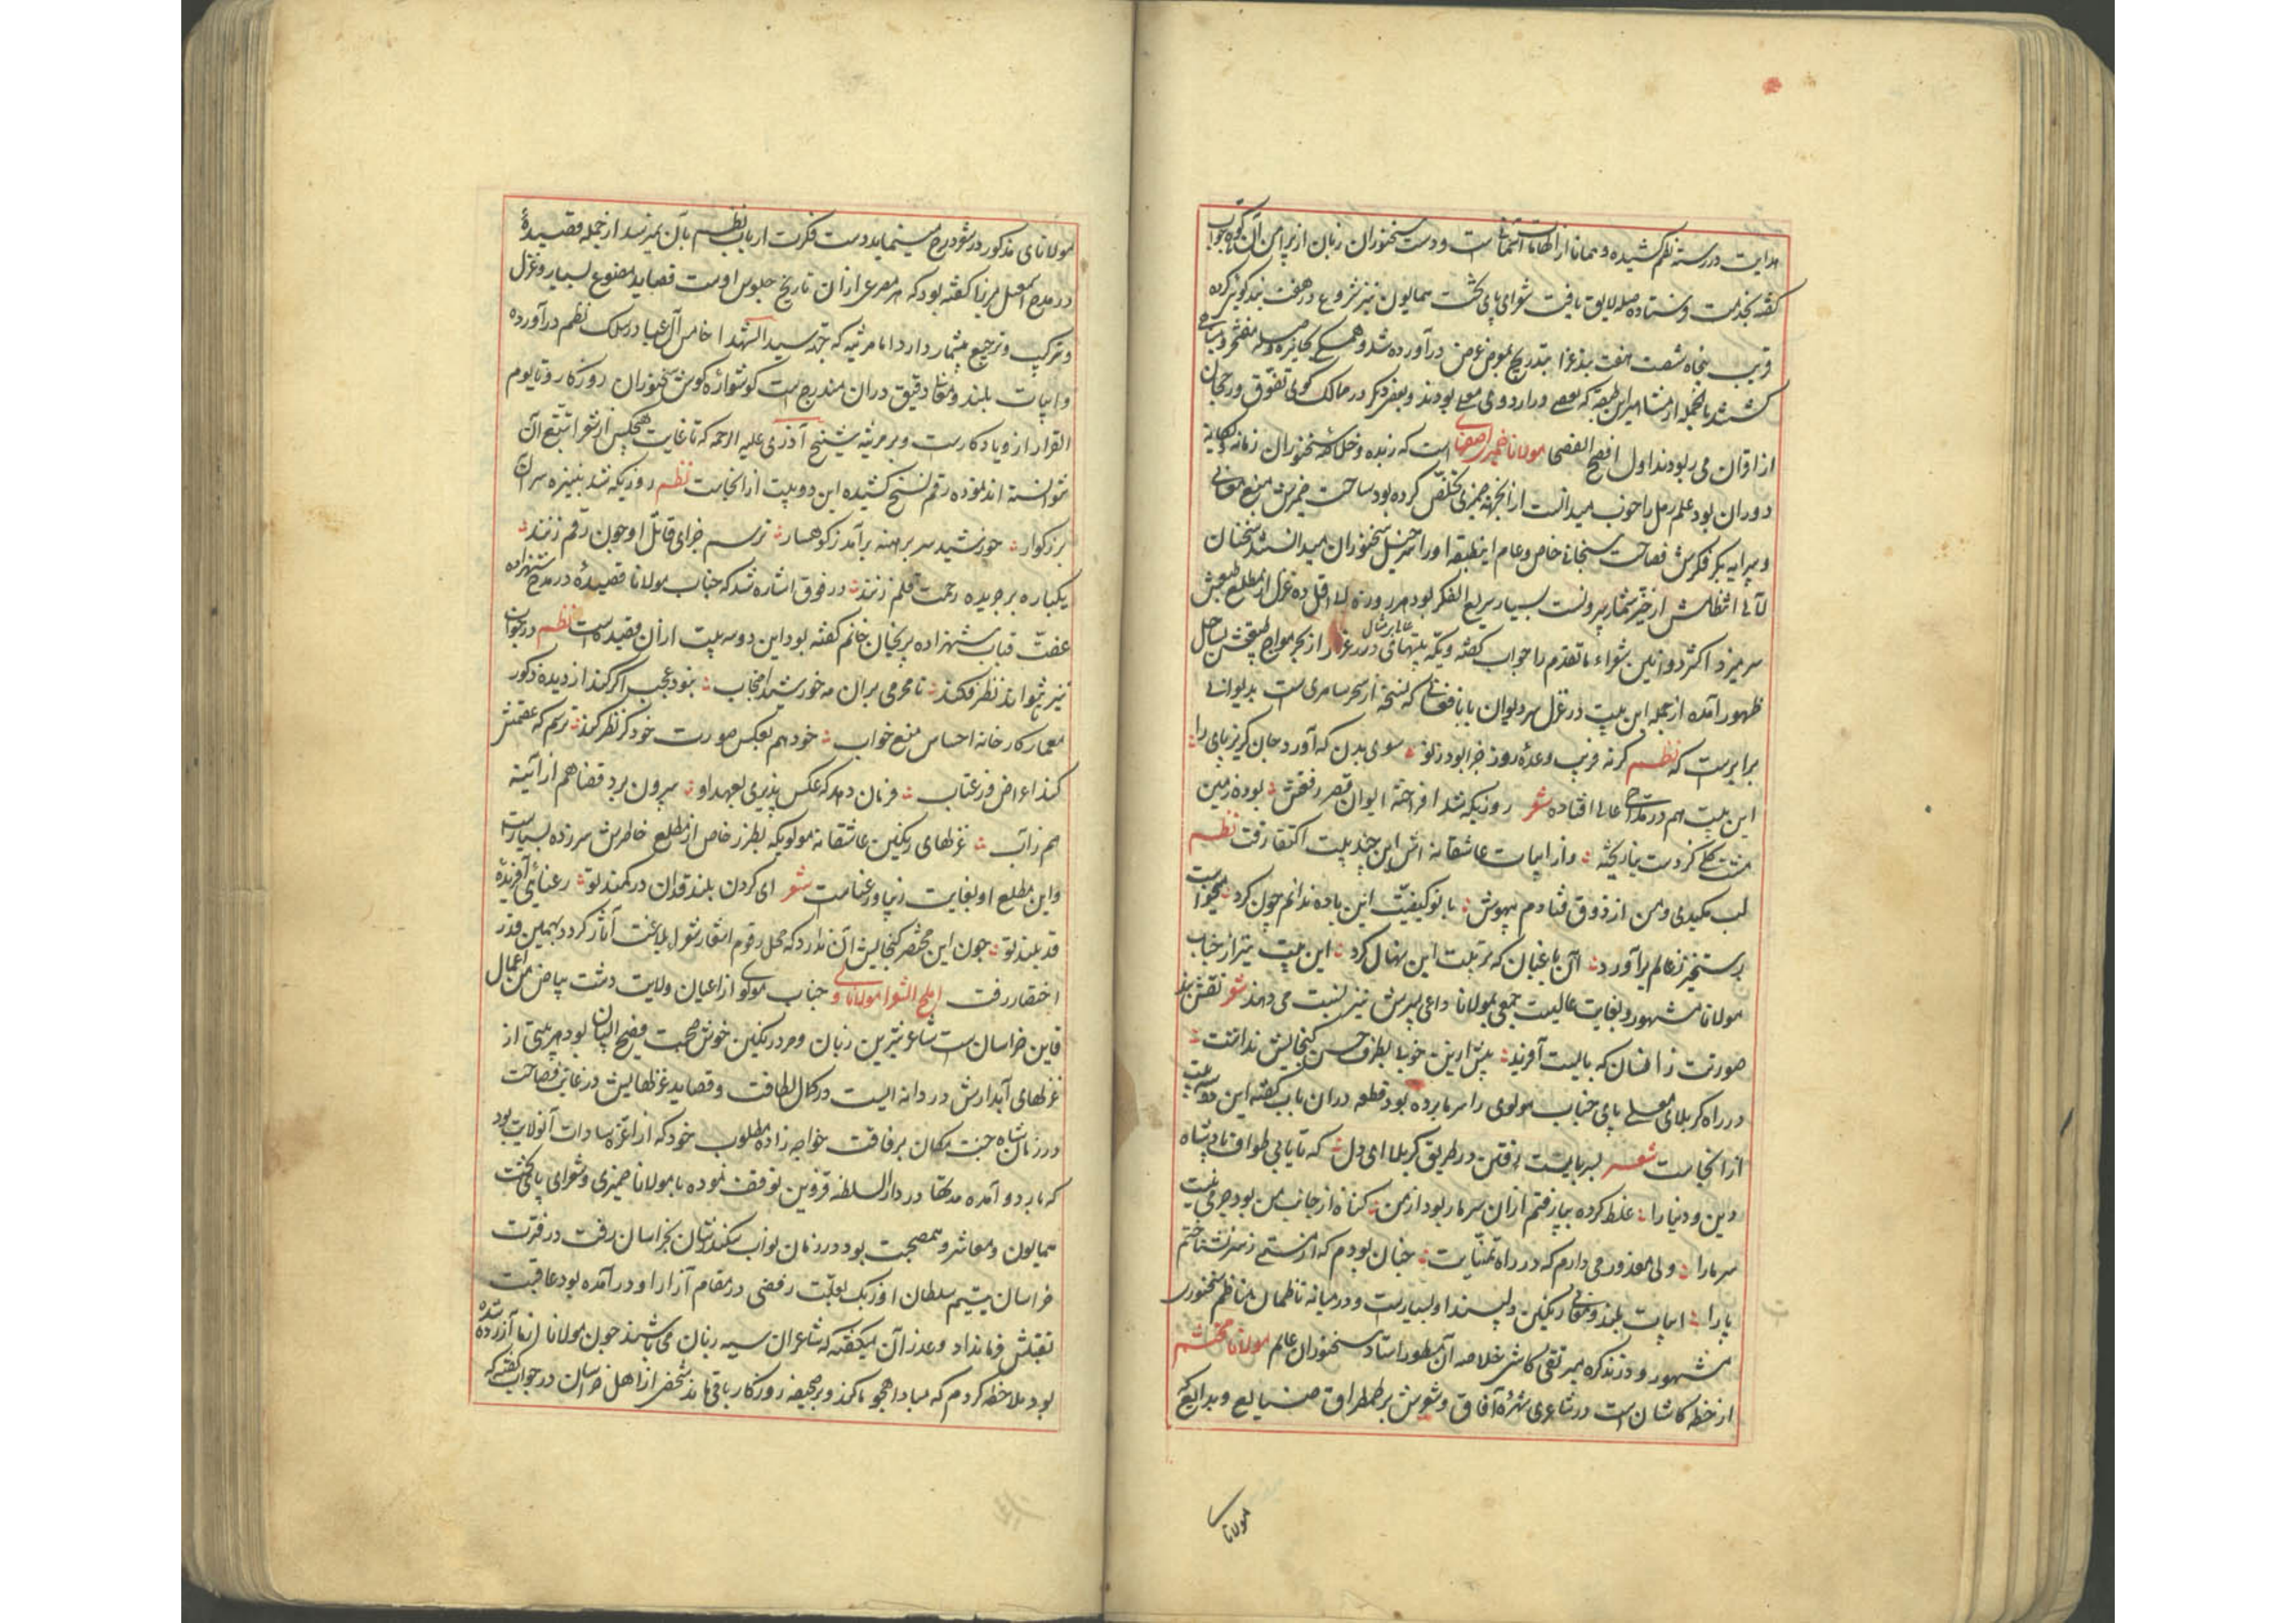 هدایت در رسته نظم کشیده و همانا از الهامات است و دست سخنوران زبان از پیرامن آن کوتاه جواب
گفته بخدمت فرستاده صله لایق یافت شعرای پای تخت همایون نیز شروع در هفت بند گوئی کرده
قریب پنجاه شصت هفت بند غرا بتدریج بمعرض عرض درآورده شد و همگی بجایزه و صله مفتخر و مباهی
گشتند بالجمله از مشاهیر این طبقه که بعضی در اردوی معلی بودند و بعضی دیگر در ممالک گوی تفوق و رجحان
از اقران می ربودند اول افصح الفصحا مولانا ضمیری اصفهانی است که زبده و خلاصه سخنوران زمانه و یگانه
دوران بود علم رمل را خوب میدانست از آنجهة ضمیری تخلص کرده بود ساحت ضمیرش منبع معانی
و پیرایه بکر فکرش فصاحت سبحانی خاص و عام اینطبقه او را سرخیل سخنوران میدانستند سخنان
لآلی انتظامش از حیز شمار بیرونست بسیار سریع الفکر بود هر روزه لااقل ده غزل از مطلع طبعش
سر میزد اکثر دواوین شعراء ماتقدم را جواب گفته و یکه بیتهای عالی درر غرر مثال از بحر مواج طبیعتش بساحل
ظهور آمده از جمله این بیت در غزل سر دیوان بابا فغانی که نسخه از سحر سامری است بدیوانی
برابرست که نظم گر نه فریب وعدهٔ روز جزا بود ز تو سوی بدن که آورد جان گریز پای را
این بیت هم در مداحی عالی افتاده شعر روزیکه شد افراخته ایوان قصر رفعتش بوده زمین
مشت گلی کز دست بنا ریخته و از ابیات عاشقانه اش باین چند بیت اکتفا رفت نظم
لب مکیدی و من از ذوق فتادم بیهوش با تو کیفیت این باده ندانم چون کرد میخواست
رستخیز ز عالم برآورد آن باغبان که تربیت این نهال کرد این بیت نیز از جناب
مولانا مشهور و بغایت عالیست جمعی بمولانا داعی پسرش نیز نسبت می دهند شعر نقش بند
صورتت ز انسان که بایست آفرید پیش ازین خوبی بطرف حسن گنجایش نداشت
در راه کربلای معلی پای جناب مولوی را سرما برده بود قطعه در آن باب گفته این دو سه بیت
از آنجاست شعر بسر بایست رفتن در طریق کربلا ای دل که تا یابی طواف پادشاه
دین و دنیا را غلط کرده بپا رفتم از آن سرما ربود از من گناه از جانب من بود جرمی نیست
سرما را ولی معذور می دارم که در راه تمنایت چنان بودم که از مستی ز سر نشناختم
پا را ابیات بلند و معانی رنگین دلپسند او بسیارست و در میانه ناظمان مناظم سخنوری
مشهور و در تذکره میر تقی کاشی خلاصه آن مسطور استاد سخنوران عالم مولانا محتشم
از خطه کاشان است در شاعری شهره آفاق و شعرش پر طمطراق صنایع و بدایع که
مولانا
مولانای مذکور در شعر درج مینماید دست فکرت ارباب نظم بآن نمیرسد از جمله قصیدهٔ
در مدح اسمعیل میرزا گفته بود که هر مصرع از آن تاریخ جلوس اوست قصاید مصنوع بسیار و غزل
و ترکیب و ترجیع بیشمار دارد اما مرثیه که جهة سید الشهدا خامس آل عبا در سلک نظم درآورده
و ابیات بلند و معانی دقیق در آن مندرج است گوشواره گوش سخنوران روزگار و تا یوم
القرار ازو یادگارست و بر مرثیه شیخ آذری علیه الرحمه که تا غایت هیچکس از شعرا تتبع آن
نتوانسته اند نموده رقم نسخ کشیده این دو بیت از آنجاست نظم روزیکه شد بنیزه سر آن
بزرگوار خورشید سر برهنه برآمد ز کوهسار ترسم جزای قاتل او چون رقم زنند
یکباره بر جریده رحمت قلم زنند در فوق اشاره شد که جناب مولانا قصیدهٔ در مدح شهزاده
عفت قباب شهزاده پریخان خانم گفته بود این دو سه بیت از آن قصیده است نظم در خواب
نیز نتواند نظر فکند نامحرمی بر آن مه خورشید احتجاب نبود عجب اگر کند از دیده ذکور
معمار کارخانه احساس منع خواب خود هم بعکس صورت خود گر نظر کند ترسم که عصمتش
کند اعراض و زعتاب فرمان دهد که عکس پذیری بعهد او بیرون برد قضا هم از آئینه
هم ز آب غزلهای رنگین عاشقانه مولویکه بطرز خاص از مطلع خاطرش سرزده بسیارست
و این مطلع او بغایت زیبا و رعناست شعر ای گردن بلند قدان در کمند تو رعنائی آفریدهٔ
قد بلند تو چون این مختصر گنجایش آن ندارد که محل رقوم اشعار شعرای بلاغت آثار گردد بهمین قدر
اختصار رفت املح الشعرا مولانا ولی جناب مولوی از اعیان ولایت دشت بیاض من اعمال
قاین خراسان است شاعر شیرین زبان و مرد رنگین خوش صحبت فصیح البیان بود هر بیتی از
غزلهای آبدارش در دانه ایست در کمال لطافت و قصاید غزلهایش در غایت فصاحت
در زمان شاه جنت مکان برفاقت خواجه زاده مطلوب خود که از اعزه سادات آنولایت بود
که باردو آمده مدتها در دار السلطنه قزوین توقف نموده با مولانا ضمیری و شعرای پای تخت
همایون و معاشر و همصحبت بود در زمان نواب سکندر شان بخراسان رفت در فترت
خراسان یتیم سلطان اوزبک بعلت رفضی در مقام آزار او درآمده بود عاقبت
بقتلش فرمان داد و عذر آن میگفته که شاعران سیه زبان می باشند چون مولانا از ما آزرده شده
بود ملاحظه کردم که مبادا هجو ما کند و بر صحیفه روزگار باقی ماند شخصی از اهل خراسان در جواب گفته که